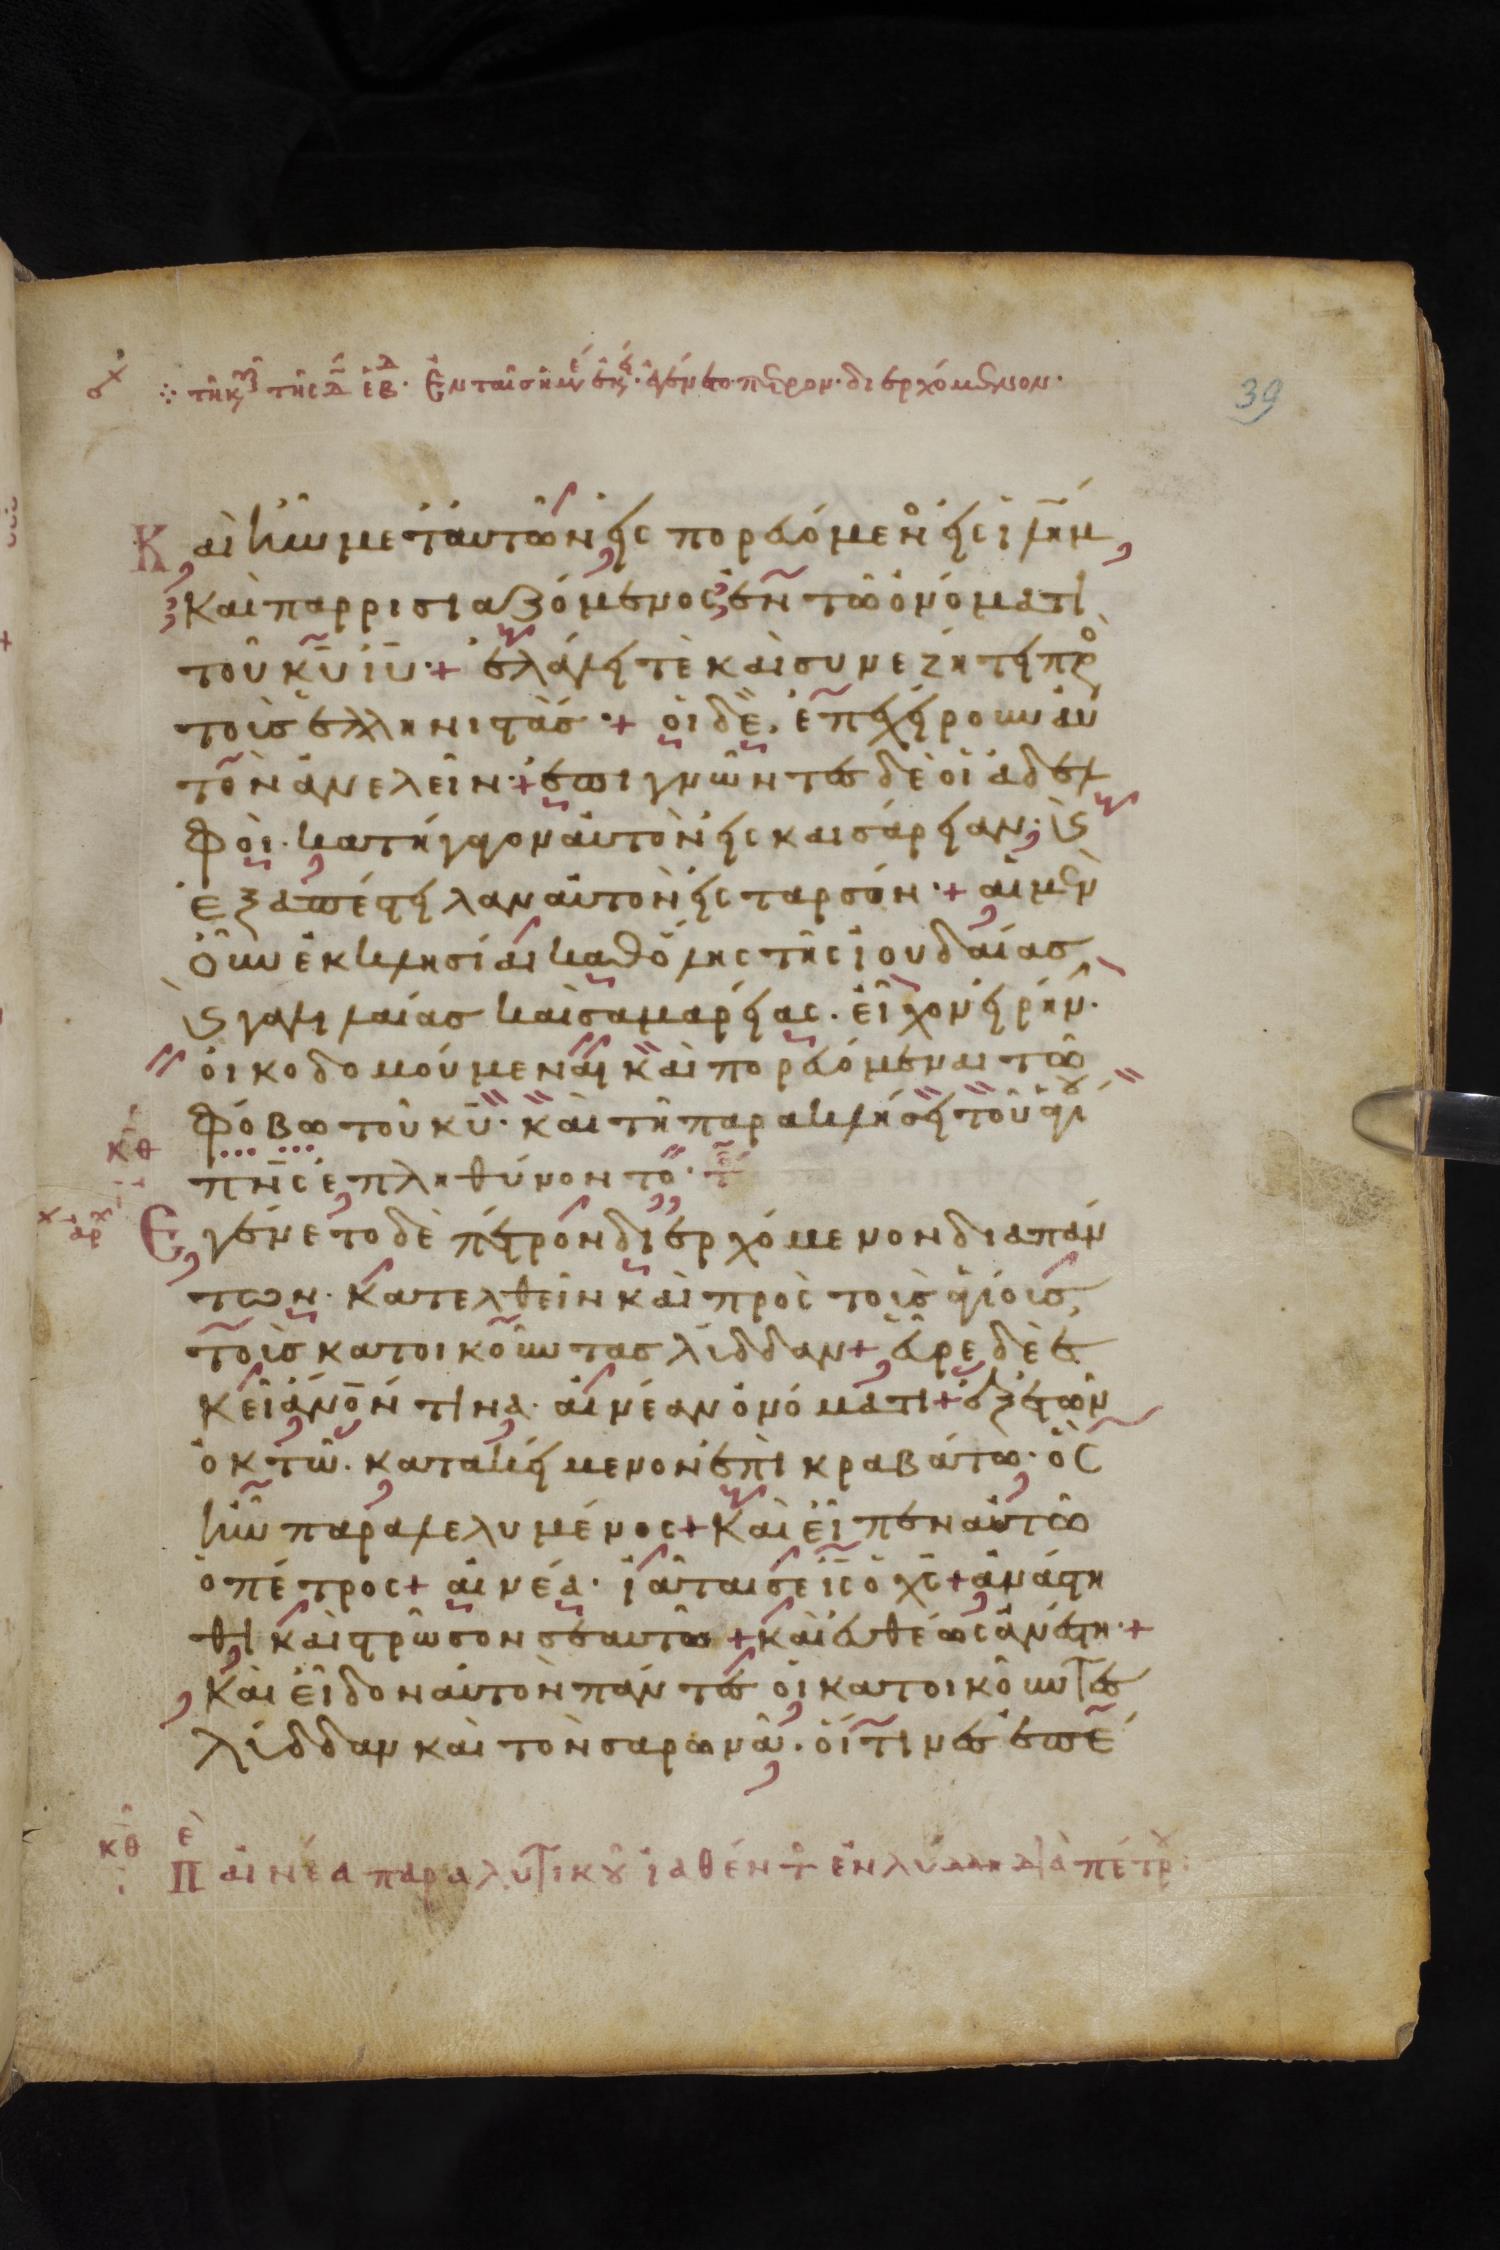 39
Καὶ ἦν μετ αυτῶν εἰς πορευόμενος εἰς ιλημ
καὶ παρρισιαζόμενος ἐν τῶ ὀνόματι
τοῦ κυ ιυ + ἐλάλει τὲ καὶ συνεζητει πρὸς
τοὺς ἑλληνιστὰς + οἱ δὲ, ἐπεχείρουν αὐ
τὸν ἀνελεῖν + ἐπιγνῶντες δὲ οἱ ἀδελ
φοὶ. κατήγαγον αὐτὸν εἰς καισάρειαν. καὶ
ἐξαπέστειλαν αὐτὸν εἰς ταρσόν + αἱ μὲν
οὖν ἐκκλησίαι καθόλης τῆς ἰουδαίας
καὶ γαλιλαίας καὶ σαμαρείας. εἶχον εἰρήνην.
οἰκοδομούμεναι καὶ πορευόμεναι τῶ
φόβω τοῦ κυ. καὶ τῆ παρακλήσει τοῦ ἁγίου
πνς ἐπληθύνοντο.
Ἐγένετο δὲ πέτρον διερχόμενον διαπάν
των. κατελθεῖν καὶ πρὸς τοὺς ἁγίους
τοὺς κατοικοῦντας λύδδαν + εὗρε δὲ ἐ
κεῖ ἀνον τινα. αἰνέαν ὀνόματι + ἐξ ἐτῶν
ὀκτῶ. κατακείμενον ἐπὶ κραβάτω. ὃς
ἦν παραλελυμένος + καὶ εἶπεν αὐτῶ
ὁ πέτρος + αἰνέα. ἰᾶται σε ις ὁ χς + ἀνάστη
θι καὶ στρῶσον σεαυτῶ + καὶ εὐθέως ἀνέστη +
καὶ εἶδον αὐτὸν πάντες οἱ κατοικοῦντες
λύδδαν καὶ τὸν σαρωνᾶ. οἵτινες ἐπέ
κθ Π αἰνέα παραλυτικοῦ ἰαθέντος ἐν λύδδη διὰ πέτρου